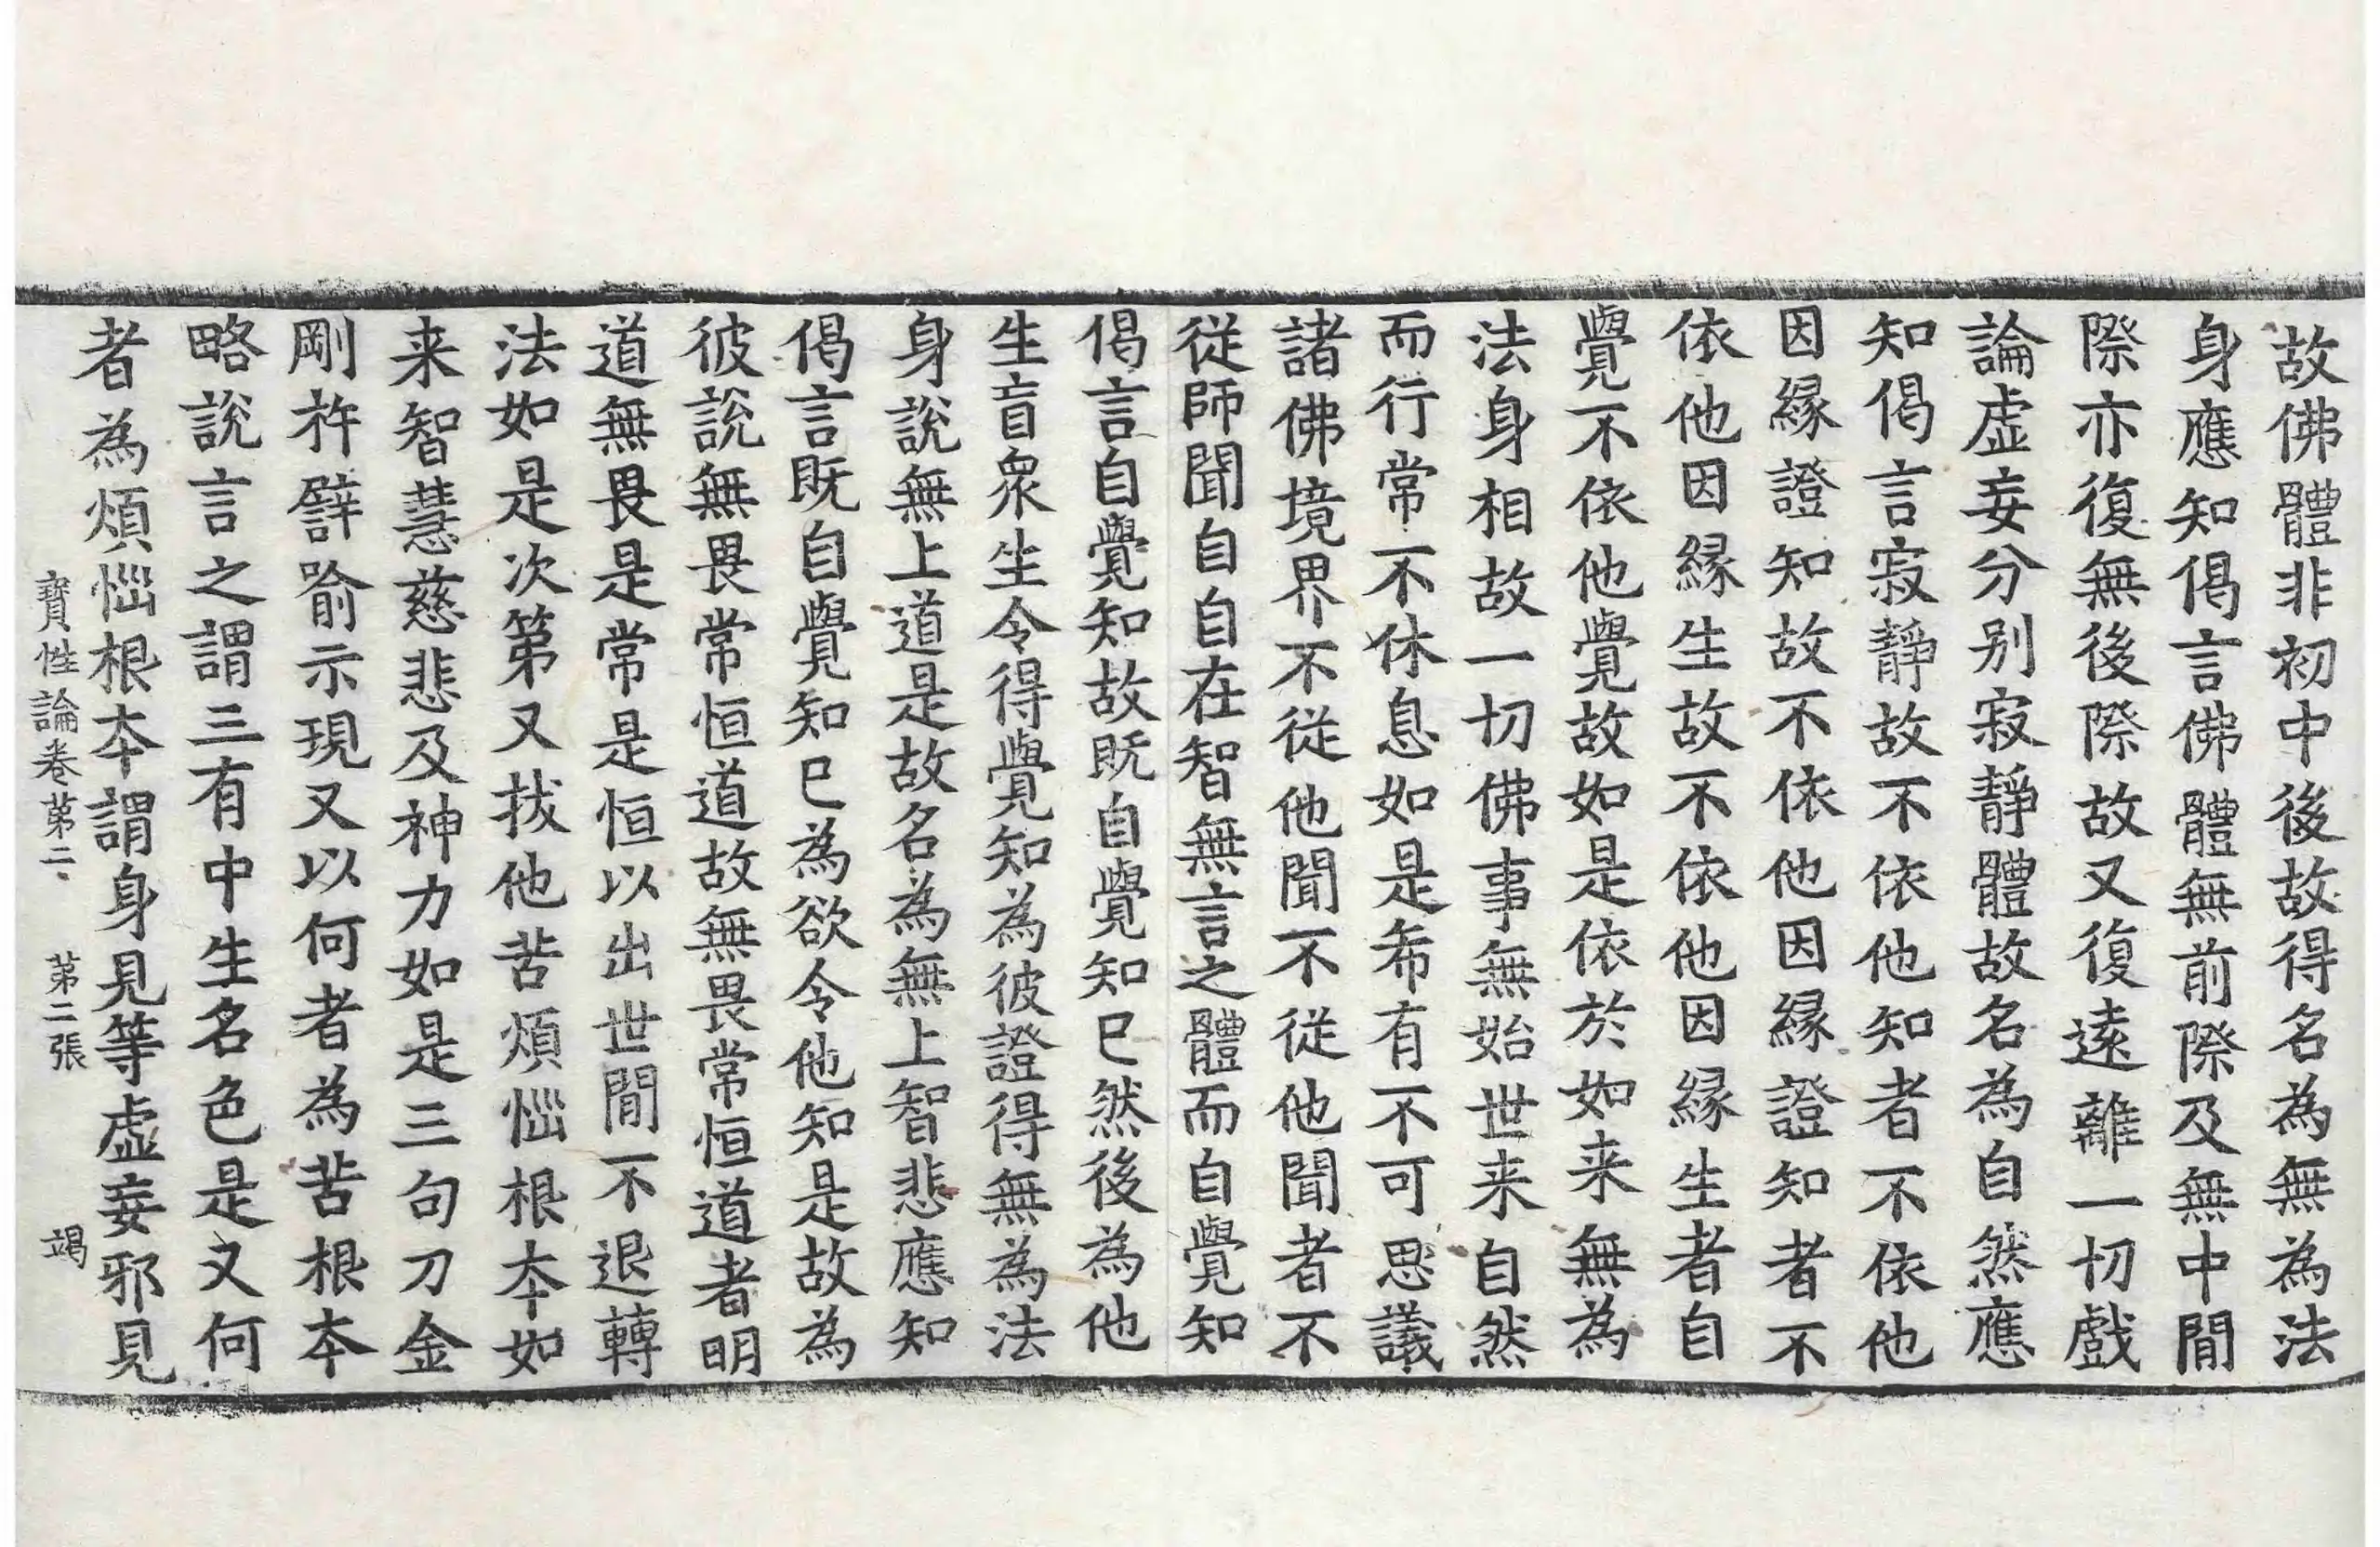 故佛體非初中後故得名為無為法
身應知偈言佛體無前際及無中間
際亦復無後際故又復遠離一切戲
論虛妄分别寂靜體故名為自然應
知偈言寂靜故不依他知者不依他
因緣證知故不依他因緣證知者不
依他因緣生故不依他因緣生者自
覺不依他覺故如是依於如来無為
法身相故一切佛事無始世来自然
而行常不休息如是希有不可思議
諸佛境界不從他聞不從他聞者不
從師聞自自在智無言之體而自覺知
偈言自覺知故既自覺知已然後為他
生盲衆生令得覺知為彼證得無為法
身說無上道是故名為無上智悲應知
偈言既自覺知已為欲令他知是故為
彼說無畏常恒道故無畏常恒道者明
道無畏是常是恒以出世間不退轉
法如是次第又拔他苦煩惱根本如
来智慧慈悲及神力如是三句刀金
剛杵譬喻示現又以何者為苦根本
略說言之謂三有中生名色是又何
者為煩惱根本謂身見等虛妄邪見
寶性論卷第二 第二張 竭